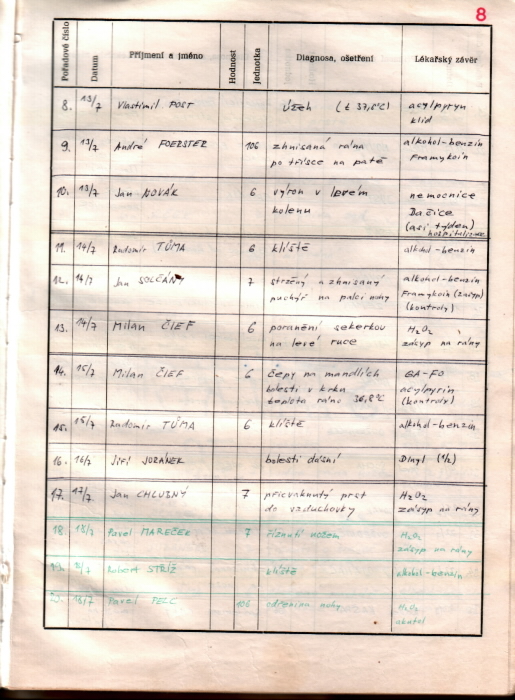 8
Pořadové číslo Datum Příjmení a jméno Hodnost Jednotka Diagnosa, ošetření Lékařský závěr
8. 13/7 Vlastimil POST úžeh (t 37,5°C) acylpyryn
klid
9. 13/7 André FOERSTER 106 zhnisaná rána alkohol-benzin
po třísce na patě Framykoin
10. 13/7 Jan NOVÁK 6 výron v levém nemocnice
kolenu Dačice
(asi týden)
hospitalizace
11. 14/7 Radomír TŮMA 6 klíště alkohol-benzin
12. 14/7 Jan SOLČÁNY 7 stržený a zhnisaný alkohol-benzin
puchýř na palci nohy Framykoin (zásyp)
(kontroly)
13. 14/7 Milan ČIEF 6 poranění sekerkou H2O2
na levé ruce zásyp na rány
14. 15/7 Milan ČIEF 6 čepy na mandlích GA-FO
bolesti v krku acylpyrin
teplota ráno 36,8°C (kontroly)
15. 15/7 Radomír TŮMA 6 klíště alkohol-benzin
16. 16/7 Jiří JORÁNEK bolesti dásní Dinyl (1/2)
17. 17/7 Jan CHLUBNÝ 7 přicvaknutý prst H2O2
do vzduchovky zásyp na rány
18. 18/7 Pavel MAREČEK 7 říznutí nožem H2O2
zásyp na rány
19. Robert STŘÍŽ klíště alkohol-benzin
20. 18/7 Pavel PELC 106 odřenina nohy H2O2